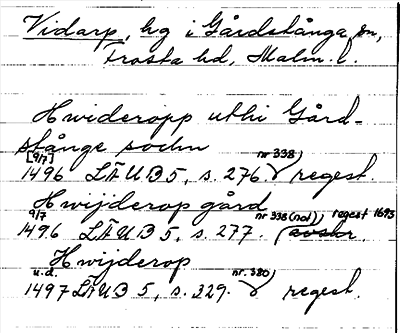 Vidarp, hg i Gårdstånga sn,
Frosta hd, Malm. l.
Hwideropp uthi Gård-
stånge sochn
[9/7] nr 338)
1496 LÄUB 5, s. 276. regest.
Hwijderop gård
9/7 nr 338 (not), regest 1693
1496 LÄUB 5, s. 277.
Hwijderop
u.d. nr. 380)
1497 LÄUB 5, s. 329. regest.